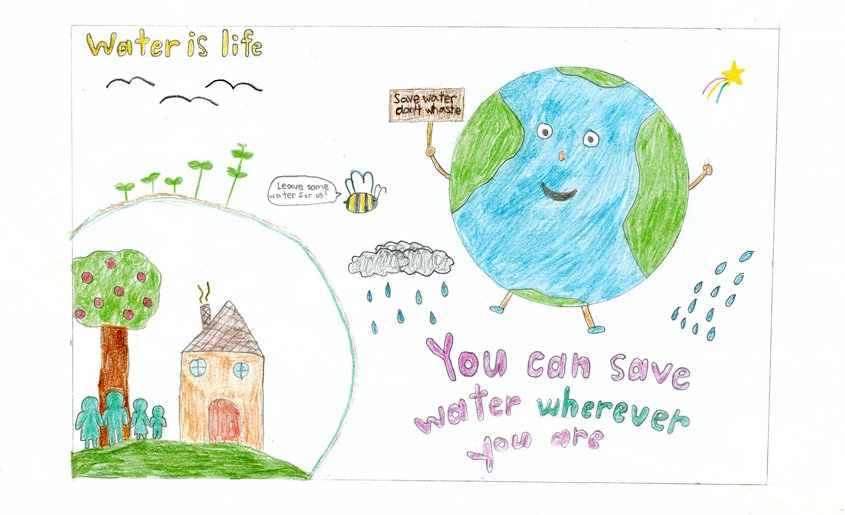 Water is life
Save water
don't whaste
Leave some
water for us!
You can save
water wherever
you are